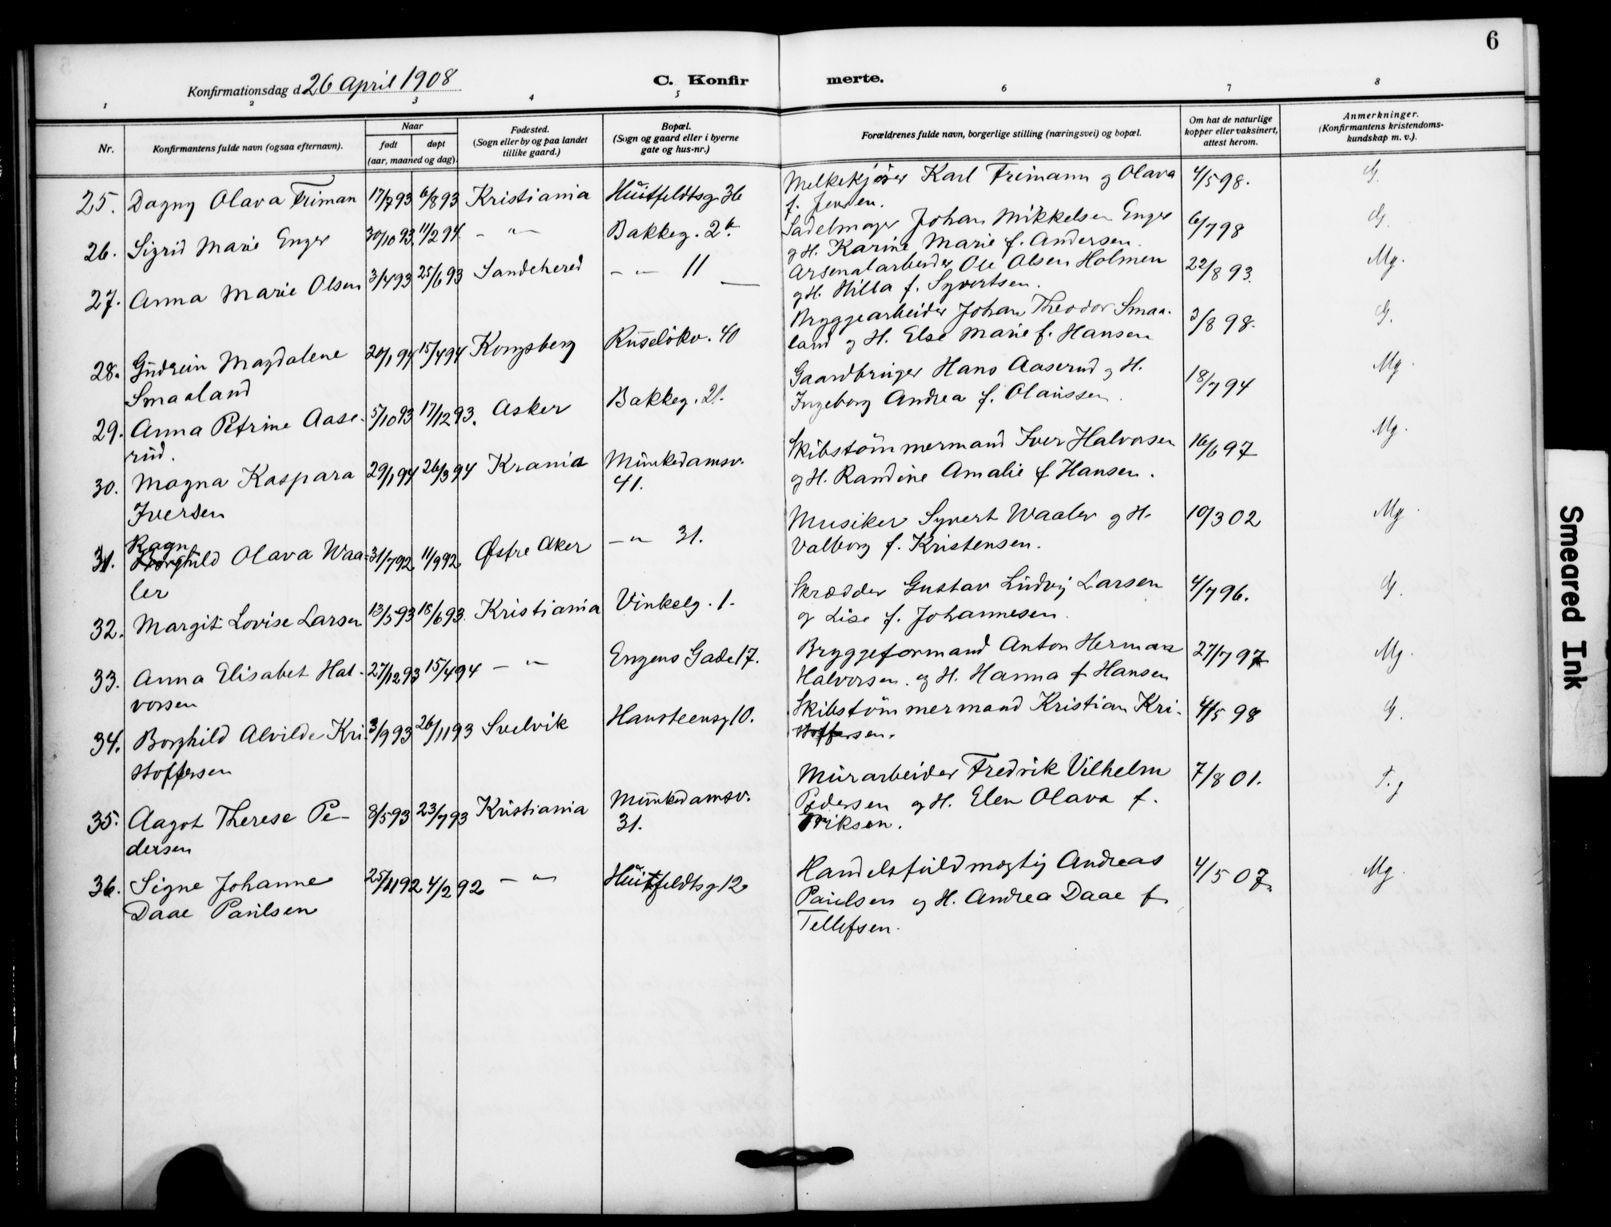 6
Konfirmationsdag d. 26 April 1908
C. Konfirmerte.
1 2 3 4 5 6 7 8
Nr.
Konfirmantens fulde navn (ogsaa efternavn).
Naar
født døpt
(aar, maaned og dag).
Fødested.
(Sogn eller by og paa landet
tillike gaard.)
Bopæl.
(Sogn og gaard eller i byerne
gate og hus-nr.)
Forældrenes fulde navn, borgerlige stilling (næringsvei) og bopæl.
Om hat de naturlige
kopper eller vaksinert,
attest herom.
Anmerkninger.
(Konfirmantens kristendoms-
kundskap m. v.).
25. Dagny Olava Friman 17/7 93 6/8 93 Kristiania Huitfeldtsg 36 Melkekjører Karl Frimann og Olava 4/5 98. G.
f. Jensen.
26. Sigrid Marie Enger 30/10 93 11/2 94 – " – Bakkeg. 2 Sadelmager Johan Mikkelsen Enger 6/7 98 G.
og H. Karine Marie f. Andersen.
27. Anna Marie Olsen 3/4 93 25/6 93 Sandehered – " – 11 Arsenalarbeider Ole Olsen Holmen 22/8 93. Mg.
og H. Hilla f. Syvertsen.
28. Gudrun Magdalene 20/1 94 15/4 94 Kongsberg Ruseløkv. 40 Bryggearbeider Johan Theodor Smaa- 3/8 98. G.
Smaaland land og H. Else Marie f. Hansen
29. Anna Petrine Aase- 5/10 93 17/12 93. Asker Bakkeg. 21. Gaardbruger Hans Aaserud og H. 18/7 94 Mg.
rud. Ingeborg Andrea f. Olaussen.
30. Magna Kaspara 29/1 94 26/3 94 Krania Munkedamsv. Skibstømmermand Iver Halvorsen 16/6 97 Mg.
Iversen 41. og H. Randine Amalie f Hansen.
31. Ragnhild Olava Waa- 31/7 92 11/9 92 Østre Aker – " – 31. Musiker Syvert Waaler og H. 10/3 02 Mg.
ler Valborg f. Kristensen.
32. Margit Lovise Larsen 13/5 93 18/6 93 Kristiania Vinkelg. 1. Skrædder Gustav Ludvig Larsen 4/7 96. G.
og Lise f. Johannesen.
33. Anna Elisabet Hal- 27/12 93 15/4 94 – " – Engens Gade 17. Bryggeformand Anton Herman 27/7 97 Mg.
vorsen Halvorsen. og H. Hanna f Hansen
34. Borghild Alvilde Kri- 3/9 93 26/11 93 Svelvik Hansteensg 10. Skibstømmermand Kristian Kri- 4/5 98 G.
stoffersen stoffersen.
35. Aagot Therese Pe- 8/5 93 23/7 93 Kristiania Munkedamsv. Murarbeider Fredrik Vilhelm 7/8 01. T.g
dersen 31. Pedersen og H. Elen Olava f.
Eriksen.
36. Signe Johanne 25/11 92 4/2 92 – " – Huitfeldtsg 12 Handelsfuldmægtig Andreas 4/5 07. Mg.
Daae Paulsen Paulsen og H. Andrea Daae f
Tellefsen.
Smeared Ink